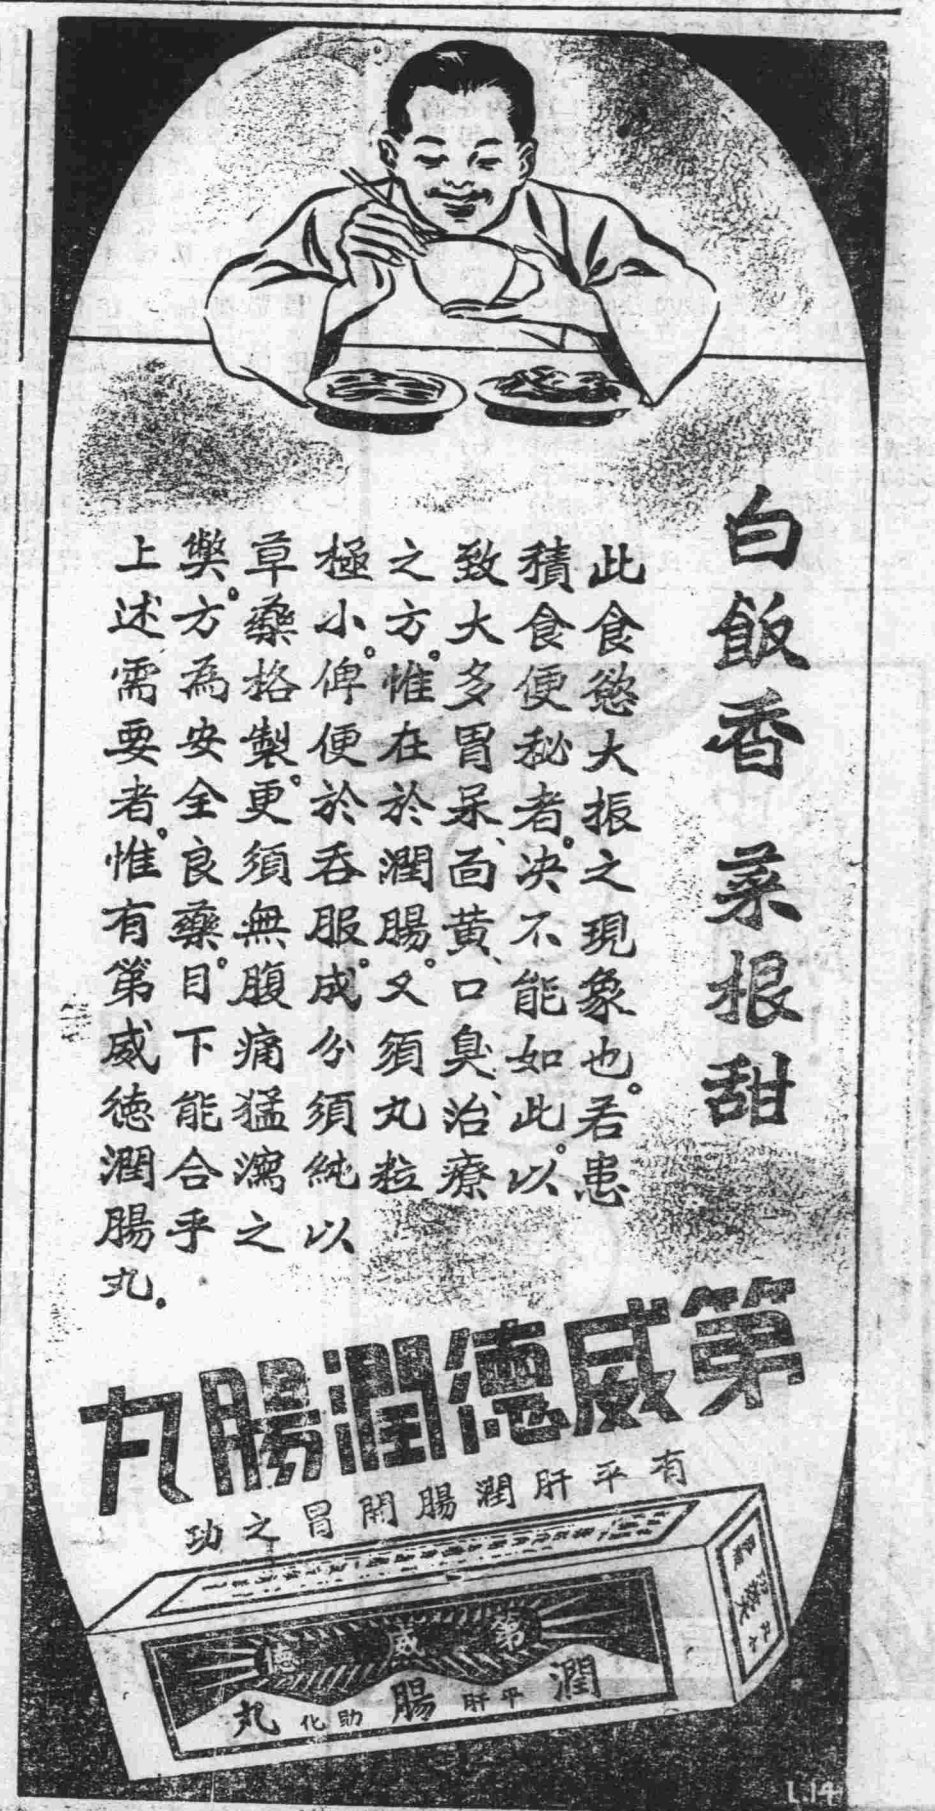 白飯香 菜根甜
此食慾大振之現象也。若患
積食便秘者。决不能如此。以
致大多胃呆、面黃、口臭、治療
之方。惟在於潤腸。又須丸粒
極小。俾便於吞服。成分須純以
草藥格製。更須無腹痛猛瀉之
獘。方為安全良藥。目下能合乎
上述需要者。惟有第威德潤腸丸。
第威德潤腸丸
有平肝潤腸開胃之功
第威德
潤 平肝 腸 助化 丸
1.14